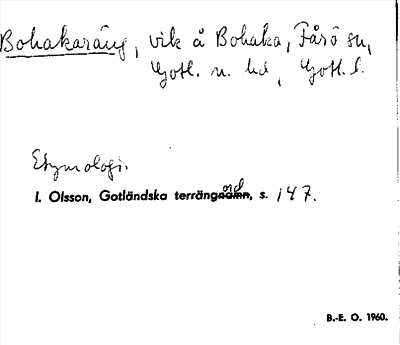 Bohakaräng, vik å Bohaka, Fårö sn,
Gotl. n. hd, Gotl. l.
Etymologi.
I. Olsson, Gotländska terrängord, s. 147.
B.-E. O. 1960.